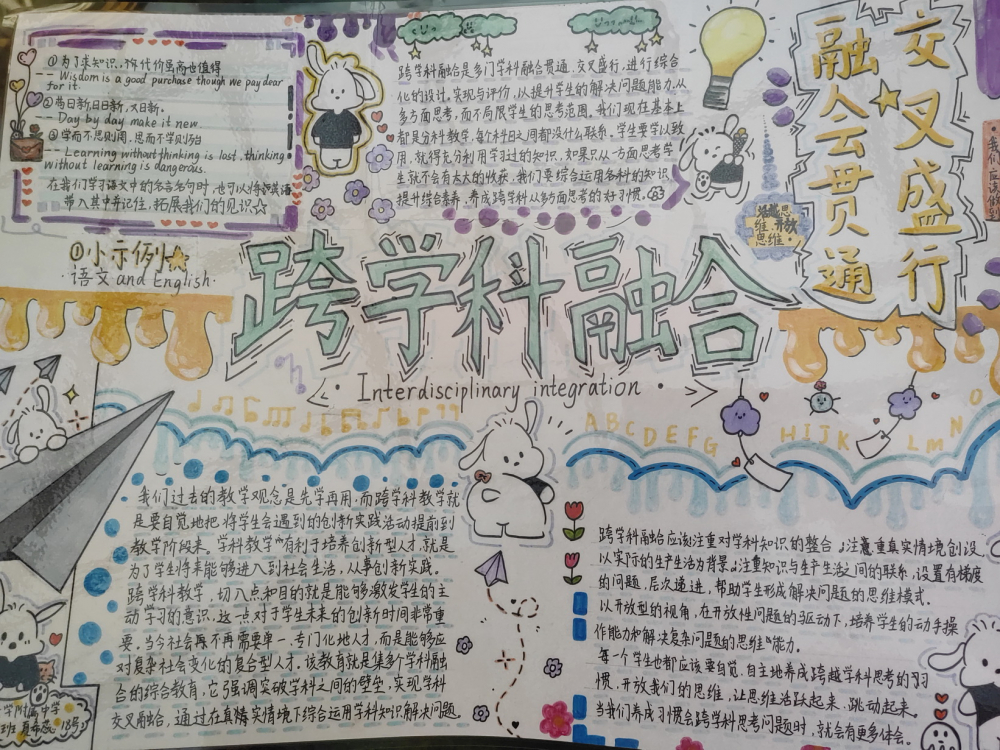 ①为了求知识,你代价虽高也值得
-- Wisdom is a good purchase though we pay dear
for it.
②苟日新,日日新,又日新.
-- Day by day make it new
③学而不思则罔,思而不学则殆
-- Learning without thinking is lost, thinking
without learning is dangerous.
在我们学习语文中的名言名句时,也可以将英语
带入其中并记住,拓展我们的见识☆
①小示例
·语文 and English·
跨学科融合是多门学科融合贯通,交叉盛行,进行综合
化的设计,实现与评价,以提升学生的解决问题能力,从
多方面思考,而不局限学生的思考范围,我们现在基本上
都是分科教学,每亇科目之间都没什么联系,学生要学以致
用,就得充分利用学习过的知识,如果只从一方面思考学
生就不会有太大的收获,我们要综合运用各科的知识,
提升综合素养,养成跨学科从多方面思考的好习惯。
交叉盛行
融会贯通
思维
跨学科融合
Interdisciplinary integration
A B C D E F G
H I J K
L M N
O
我们过去的教学观念是先学再用,而跨学科教学就
是要自觉地把将学生会遇到的创新实践活动提前到
教学阶段来。学科教学"有利于培养创新型人才,就是
为了学生将来能够进入到社会生活,从事创新实践。
跨学科教学,切入点和目的就是能够激发学生的主
动学习的意识,这一点对于学生未来的创新时间非常重
要。当今社会再不再需要单一、专门化地人才,而是能够应
对复杂社会变化的复合型人才。该教育就是集多个学科融
合的综合教育,它强调突破学科之间的壁垒,实现学科
交叉融合,通过在真情实情境下综合运用学科知识解决问题
跨学科融合应该注重对学科知识的整合,注意重真实情境创设,
以实际的生产生活为背景,注重知识与生产生活之间的联系,设置有梯度
的问题,层次递进,帮助学生形成解决问题的思维模式.
以开放型的视角,在开放性问题的驱动下,培养学生的动手操
作能力和解决复杂问题的思维"能力。
每一个学生也都应该要自觉、自主地养成跨越学科思考的习
惯,开放我们的思维,让思维活跃起来,跳动起来。
当我们养成习惯会跨学科思考问题时,就会有更多体会。